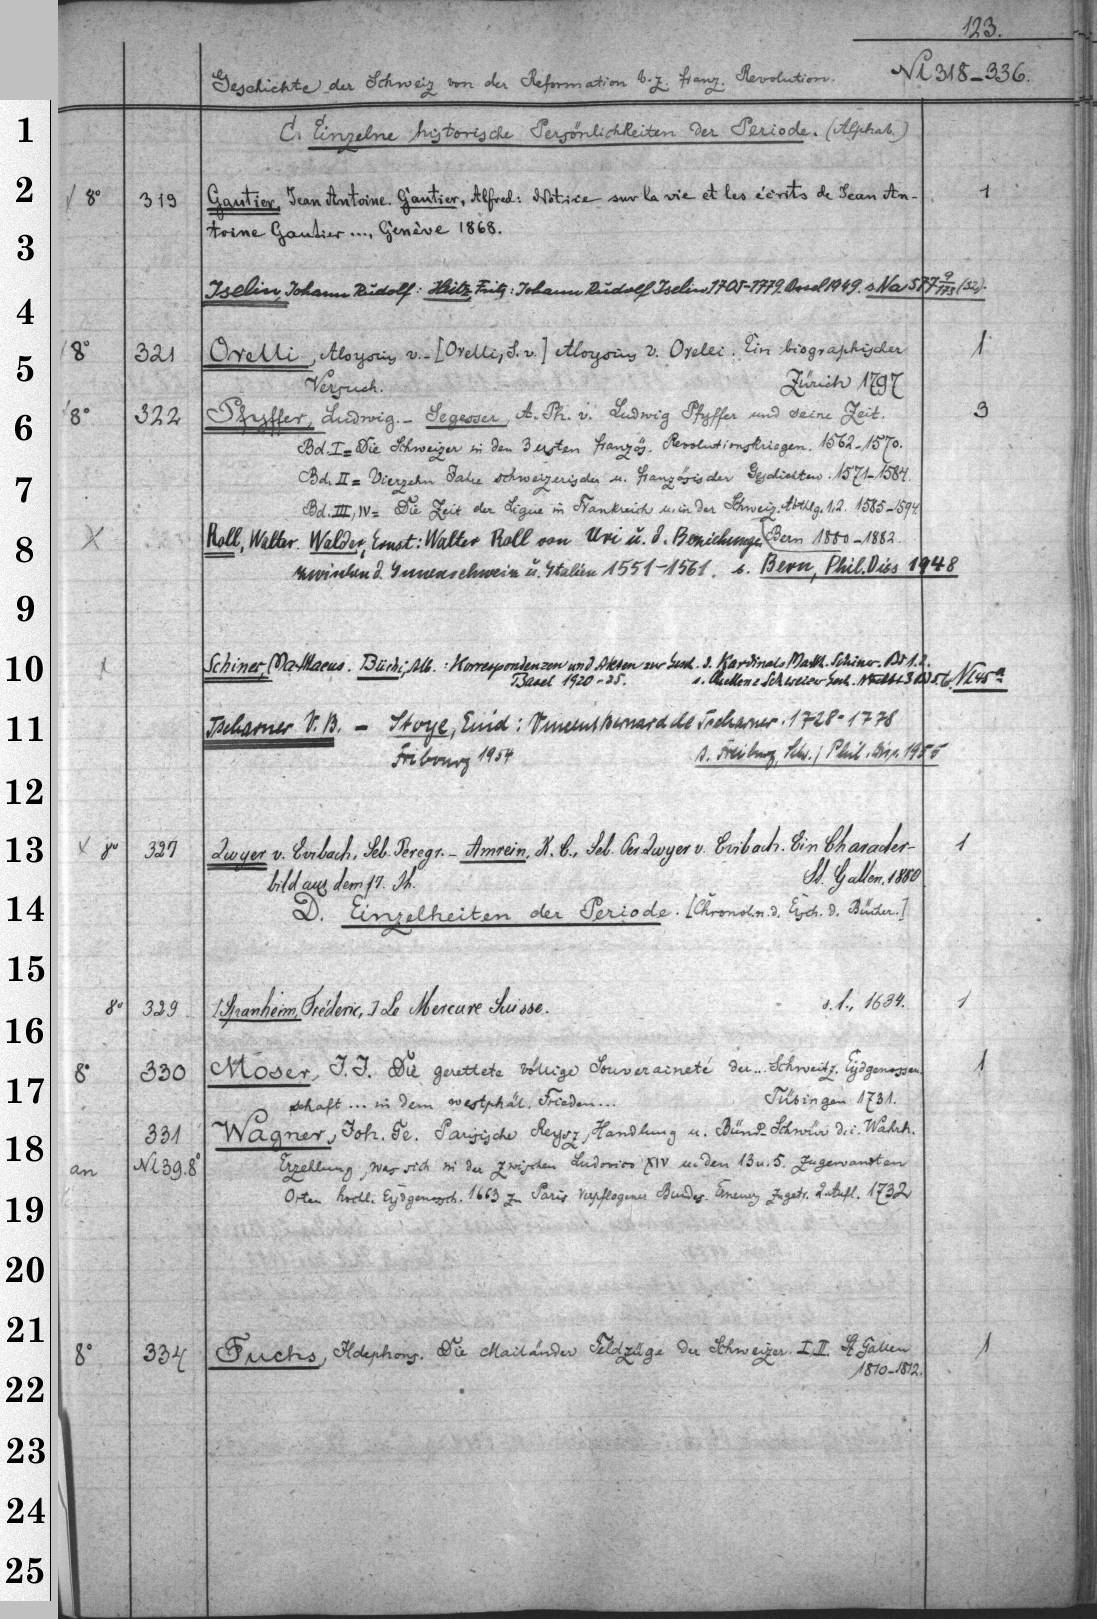 123.
Geschichte der Schweiz von der Reformation b. z. franz. Revolution. Nl 318-336.
1 C. Einzelne historische Persönlichkeiten der Periode. (Alphab.)
2 8° 319 Gautier, Jean Antoine. Gautier, Alfred: Notice sur la vie et les écrits de Jean An-
3 toine Gautier ..., Genève 1868. 1
4 Iselin, Johann Rudolf: Heitz, Fritz: Johann Rudolf Iselin, 1705-1779. Basel 1949. s. Na 577 9/173 (32).
5 8° 321 Orelli, Aloysius v. - [Orelli, S. v.] Aloysius v. Orelli. Ein biographischer 1
Versuch. Zürich 1797
6 8° 322 Pfyffer, Ludwig. - Segesser, A. Ph. v. Ludwig Pfyffer und seine Zeit. 3
Bd. I = Die Schweizer in den 3 ersten französ. Revolutionskriegen. 1562-1570.
7 Bd. II = Vierzehn Jahre schweizerischer u. französischer Geschichten. 1571-1584.
Bd. III, IV = Die Zeit der Ligue in Frankreich u. in der Schweiz. Abthlg. 1.2. 1585-1594.
8 X Roll, Walter. Walder, Ernst: Walter Roll von Uri u. d. Beziehungen Bern 1880-1882.
zwischen d. Innerschweiz u. Italien 1551-1561. s. Bern, Phil. Diss 1948
9
10 Schiner, Matthaeus. Büchi, Alb.: Korrespondenzen und Akten zur Gesch. d. Kardinals Matth. Schiner. Bd 1.2.
Basel 1920-25. s. Quellen z Schweizer Gesch. Nl 45a
11 Tscharner V. B. - Stoye, Enid: Vincent Bernard de Tscharner. 1728-1778
Fribourg 1954 s. Freiburg, Schw., Phil. Diss. 1955
12
13 X 8° 327 Zwyer v. Evibach, Seb. Peregr. - Amrein, K. C., Seb. Per Zwyer v. Evibach. Ein Character- 1
bild aus dem 17. Jh. St. Gallen, 1880
14 D. Einzelheiten der Periode. [Chronol. n. d. Ersch. d. Bücher.]
15
8° 329 [Spanheim, Fréderic,] Le Mercure Suisse. s. l., 1634. 1
16
8° 330 Moser, J. J. Die gerettete völlige Souveraineté der... Schweitz. Eydgenossen- 1
17 schaft ... in dem westphäl. Frieden... Tübingen 1731.
331 Wagner, Joh. Ge. Parisische Reysz, Handlung u. Bünd-Schwür d. i. Wahrh.
18 an Nl 39.8° Erzehlung, was sich in der zwischen Ludovico XIV u. den 13 u. 5. zugewandten
19 Orten hochl. Eydgenossch. 1663 zu Paris verpflogener Bundes-Erneurg zugetr. 2. Aufl. 1732
20
21
8° 334 Fuchs, Ildephons. Die Mailänder Feldzüge der Schweizer. I. II. St Gallen 1
1810-1812.
22
23
24
25